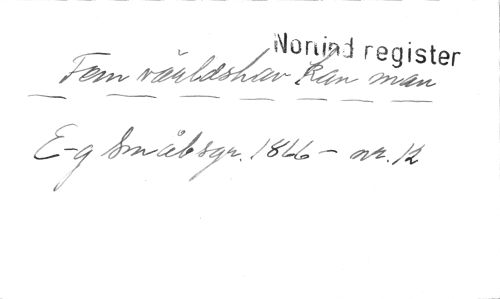 Norlind register
Fem världshav kan man
E-g Småbsgr. 1866 - nr. 12